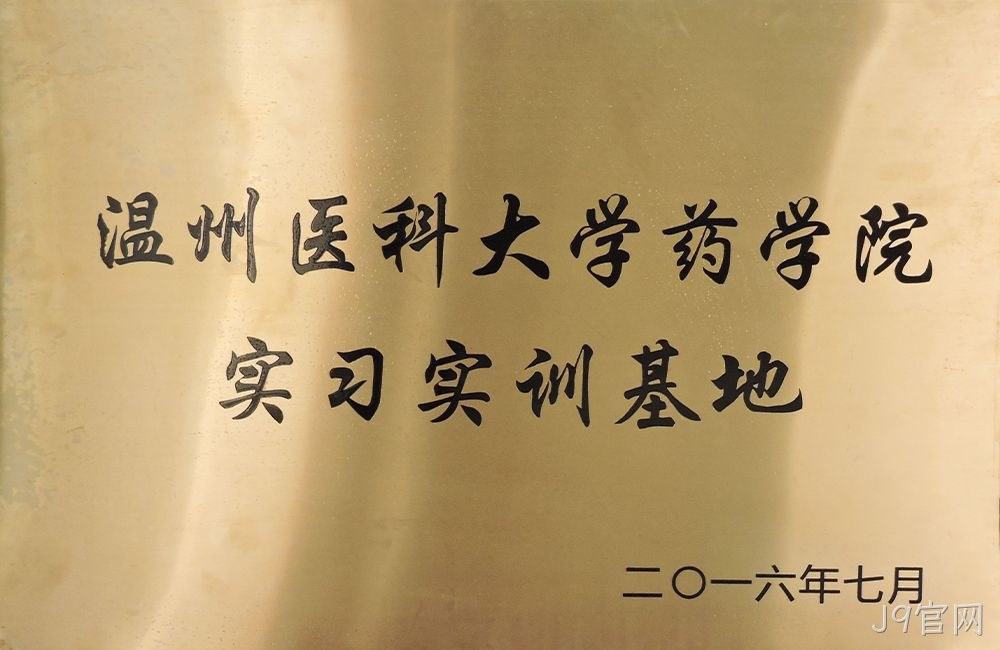 温州医科大学药学院
实习实训基地
二〇一六年七月
J9官网